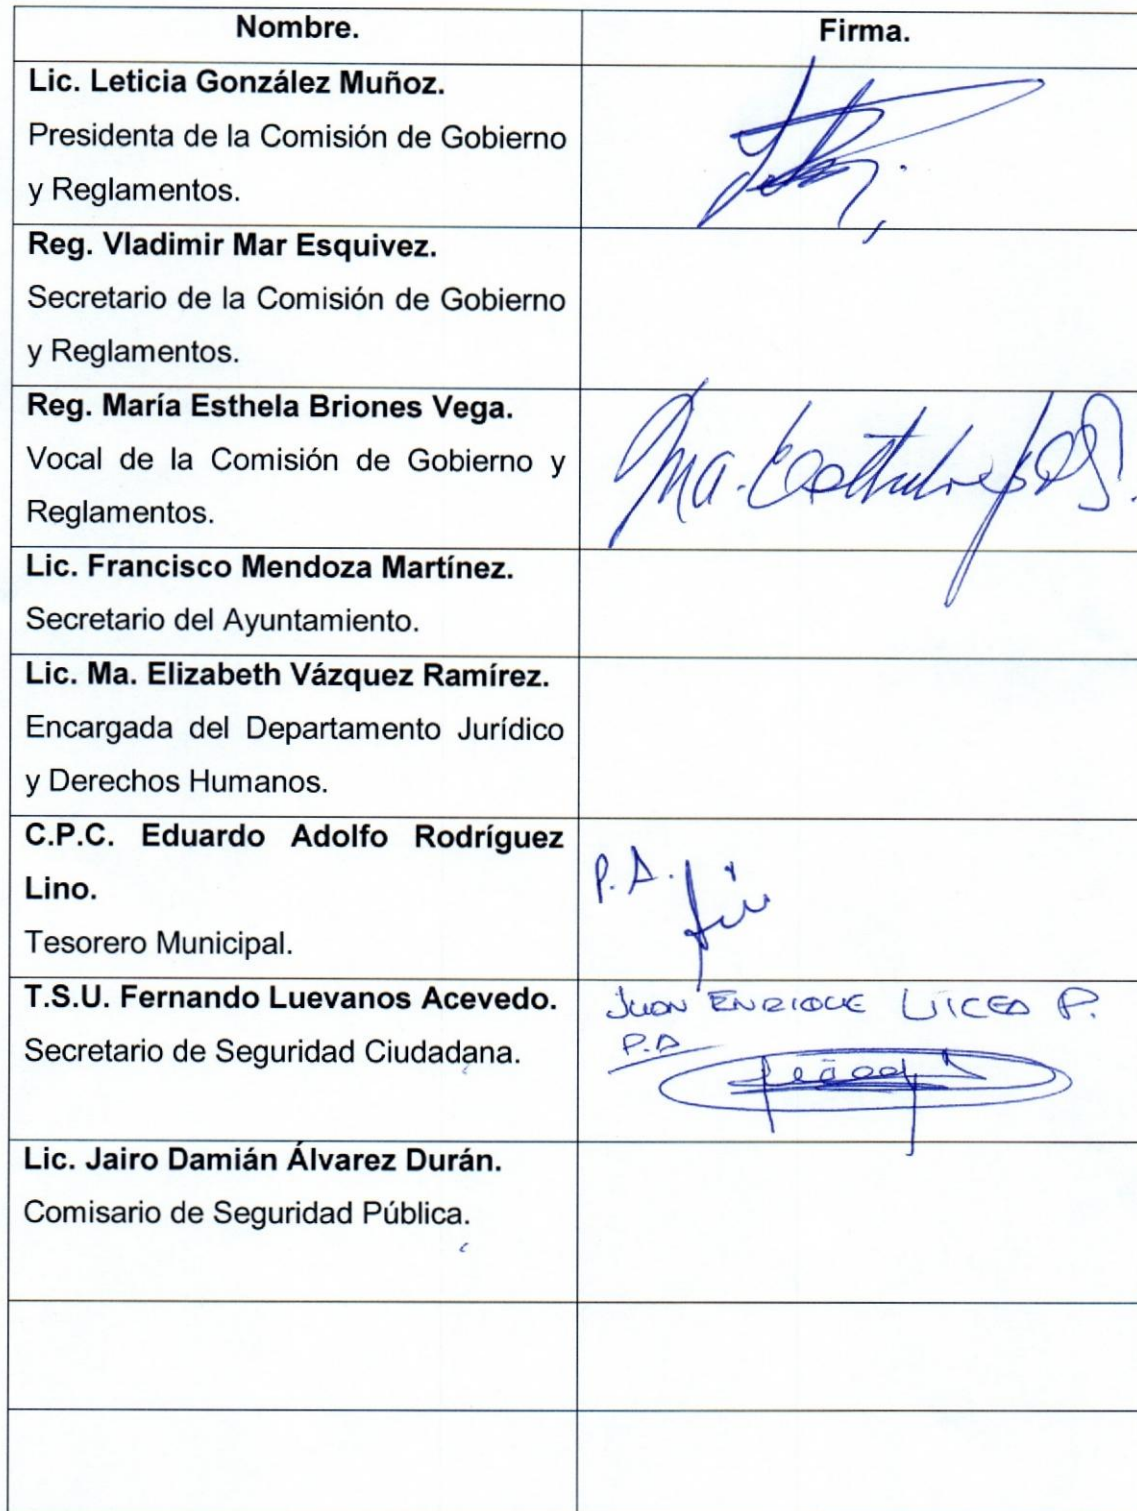 Nombre.
Firma.
Lic. Leticia González Muñoz.
Presidenta de la Comisión de Gobierno
y Reglamentos.
Reg. Vladimir Mar Esquivez.
Secretario de la Comisión de Gobierno
y Reglamentos.
Reg. María Esthela Briones Vega.
Vocal de la Comisión de Gobierno y
Reglamentos.
Ma.
Lic. Francisco Mendoza Martínez.
Secretario del Ayuntamiento.
Lic. Ma. Elizabeth Vázquez Ramírez.
Encargada del Departamento Jurídico
y Derechos Humanos.
C.P.C. Eduardo Adolfo Rodríguez
Lino.
Tesorero Municipal.
P.A.
T.S.U. Fernando Luevanos Acevedo.
Secretario de Seguridad Ciudadana.
JUAN ENRIQUE LICEA P.
P.A
Lic. Jairo Damián Álvarez Durán.
Comisario de Seguridad Pública.